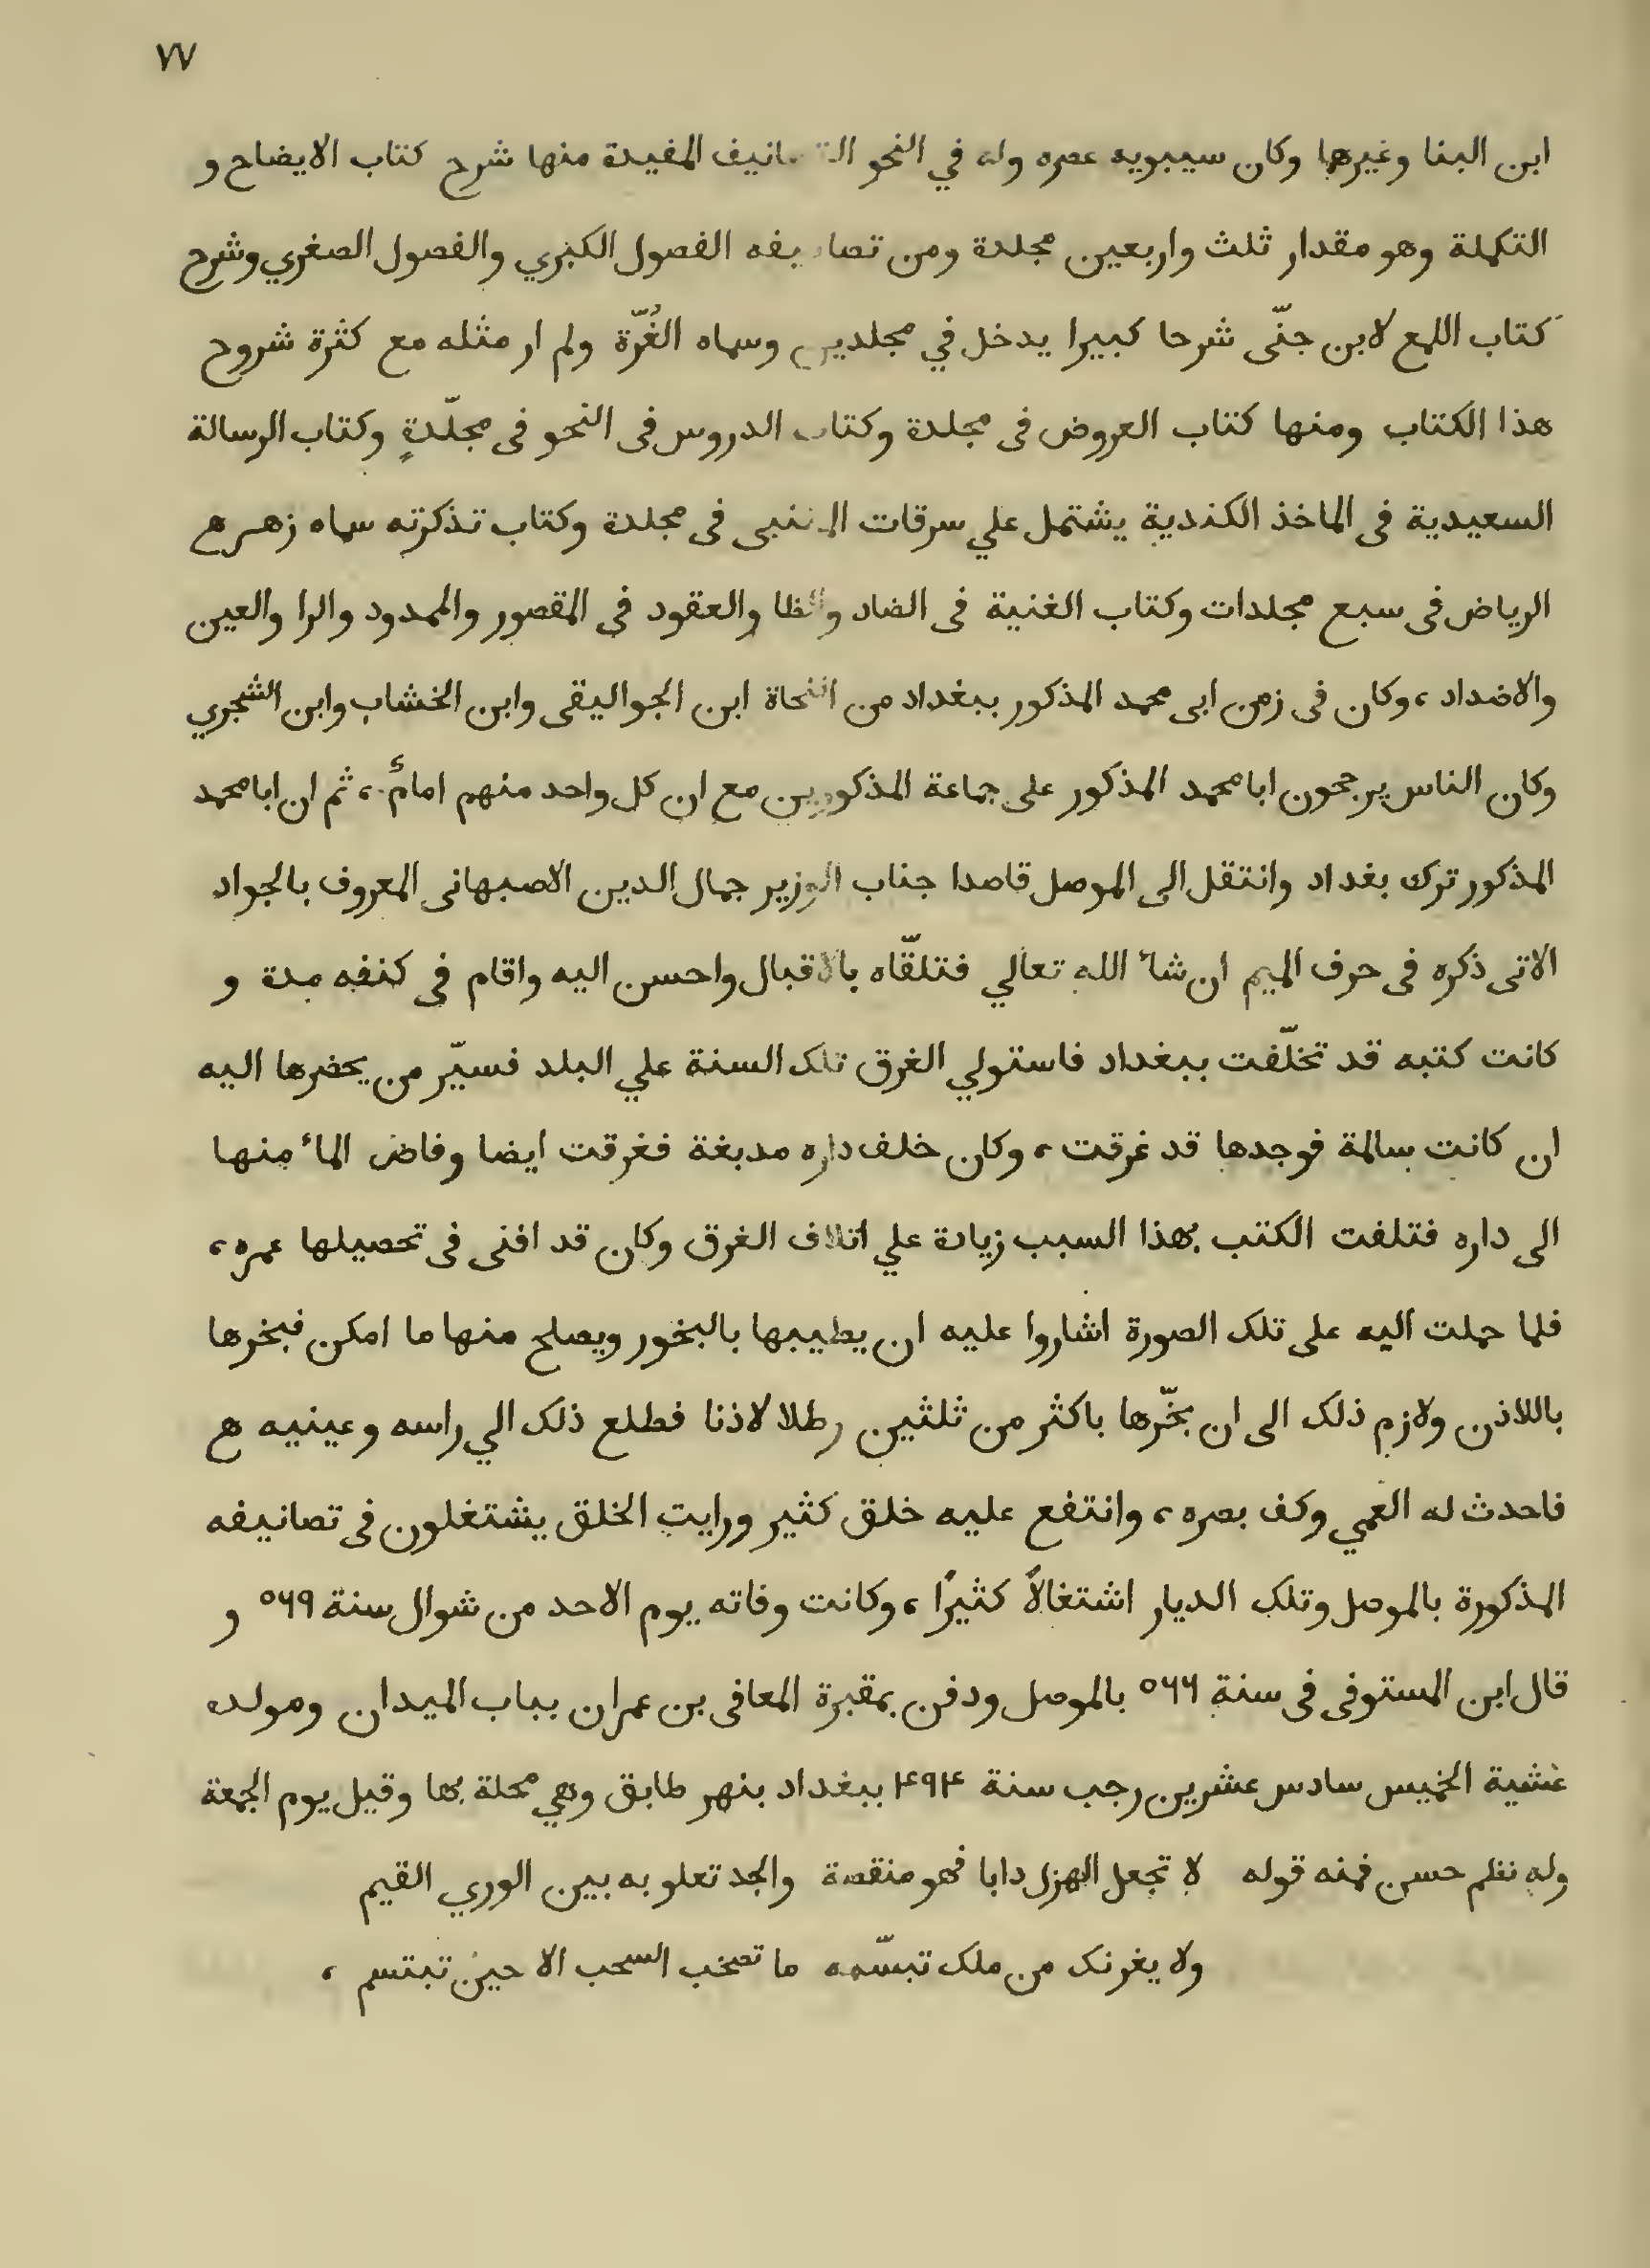 ٧٧
ابن البنا وغيرها وكان سيبويه عصره وله في النحو التصانيف المفيدة منها شرح كتاب الايضاح و
التكملة وهو مقدار ثلث واربعين مجلدة ومن تصانيفه الفصول الكبري والفصول الصغري وشرح
كتاب اللمع لابن جنّى شرحا كبيرا يدخل في مجلدين وسماه الغُرّة ولم ار مثله مع كثرة شروح
هذا الكتاب ومنها كتاب العروض فى مجلدة وكتاب الدروس فى النحو فى مجلّدةٍ وكتاب الرسالة
السعيدية فى الماخذ الكندية يشتمل علي سرقات المتنبى فى مجلدة وكتاب تذكرته سماه زهر ه
الرياض فى سبع مجلدات وكتاب الغنية فى الضاد والظا والعقود في المقصور والممدود والرا والعين
والاضداد، وكان فى زمن ابى محمد المذكور ببغداد من النحاة ابن الجواليقى وابن الخشاب وابن الشجري
وكان الناس يرجحون ابا محمد المذكور على جماعة المذكورين مع ان كل واحد منهم امامٌ، ثم ان ابا محمد
المذكور ترك بغداد وانتقل الى الموصل قاصدا جناب الوزير جمال الدين الاصبهانى المعروف بالجواد
الاتى ذكره فى حرف الميم ان شاء الله تعالي فتلقّاه بالاقبال واحسن اليه واقام في كنفه مدة و
كانت كتبه قد تخلّفت ببغداد فاستولي الغرق تلك السنة علي البلد فسيّر من يحضرها اليه
ان كانت سالمة فوجدها قد غرقت، وكان خلف داره مدبغة فغرقت ايضا وفاض الماء منها
الى داره فتلفت الكتب بهذا السبب زيادة علي اتلاف الغرق وكان قد افنى فى تحصيلها عمره،
فلما حملت اليه على تلك الصورة اشاروا عليه ان يطيبها بالبخور ويصلح منها ما امكن فبخرها
باللاذن ولازم ذلك الى ان بخّرها باكثر من ثلثين رطلا لاذنا فطلع ذلك الي راسه وعينيه ه
فاحدث له العمي وكف بصره، وانتفع عليه خلق كثير ورايت الخلق يشتغلون فى تصانيفه
المذكورة بالموصل وتلك الديار اشتغالاً كثيرًا، وكانت وفاته يوم الاحد من شوال سنة ٥٦٩ و
قال ابن المستوفى فى سنة ٥٦٦ بالموصل ودفن بمقبرة المعافى بن عمران بباب الميدان ومولده
عشية الخميس سادس عشرين رجب سنة ۴۹۴ ببغداد بنهر طابق وهي محلة بها وقيل يوم الجمعة
وله نظم حسن فمنه قوله لا تجعل الهزل دابا فهو منقصة والجد تعلو به بين الوري القيم
ولا يغرنك من ملك تبسّمه ما تصخب السحب الا حين تبتسم،